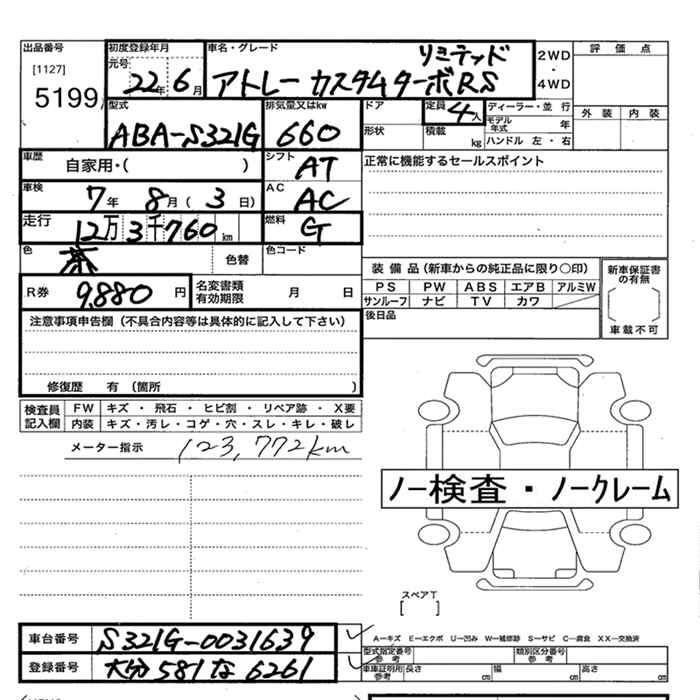 出品番号
[1127]
5199
初度登録年月
元号
22年6月
車名・グレード
リミテッド
アトレー カスタムターボRS
2WD
・
4WD
評価点
外装 内装
型式
ABA-S321G
排気量又はkw
660
ドア
形状
定員
4人
積載 kg
ディーラー・並行
モデル年式 年
ハンドル 左・右
車歴
自家用・( )
シフト
AT
正常に機能するセールスポイント
車検
7年 8月(3日)
AC
AC
走行
12万3千760km
燃料
G
色
茶
色替
色コード
R券
9,880円
名変書類有効期限 月 日
装備品(新車からの純正品に限り○印)
PS PW ABS エアB アルミW
サンルーフ ナビ TV カワ
新車保証書の有無
車載不可
後日品
注意事項申告欄(不具合内容等は具体的に記入して下さい)
修復歴 有(箇所 )
検査員記入欄
FW キズ・飛石・ヒビ割・リペア跡・X要
内装 キズ・汚レ・コゲ・穴・スレ・キレ・破レ
メーター指示 123,772km
ノー検査・ノークレーム
スペアT
[ ]
車台番号
S321G-0031639
登録番号
大分581な6261
Aーキズ Eーエクボ Uー凹み Wー補修跡 Sーサビ Cー腐食 XXー交換済
型式指定番号 参考
類別区分番号 参考
車車証明用 参考 長さ cm 幅 cm 高さ cm